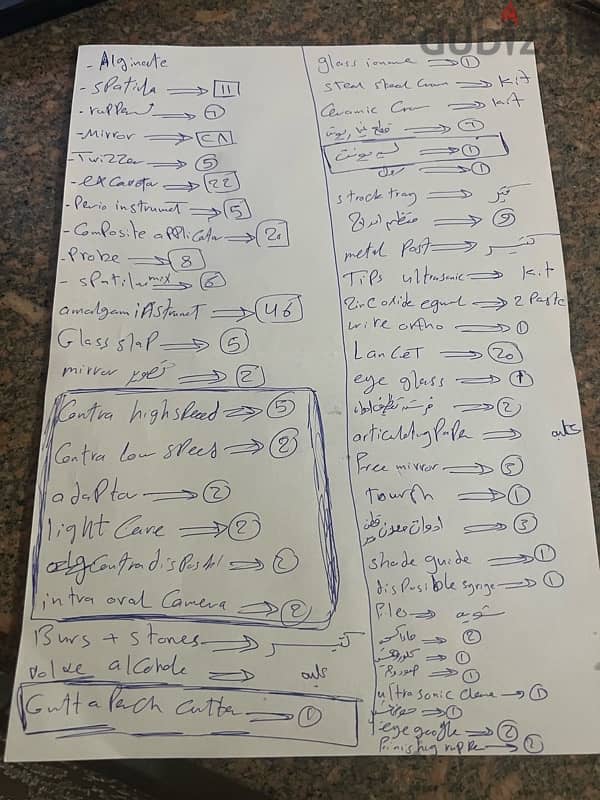 - Alginate
- spatila → 11
- rupper → 7
- Mirror →
- Twizzer → 5
- excavetor → 22
- Perio instrumet → 5
- Composite applicator → 20
- Probe → 8
- spatila mix → 6
amalgam instrumet → 46
Glass slap → 5
mirror تصوير → 2
Contra high speed → 5
Contra low speed → 2
adapter → 2
light Care → 2
Contra disposbl → 2
intra oral Camera → 2
Burs + stones → كتير
valve alcohole → علب
Gutta Perch Cutter → 1
glass ionume → 1
steal steal Crown → kit
Ceramic Crown → kit
→ 1
→ 1
strock tray → كتير
منظم ادراج → 9
metal Post → كتير
Tips ultrasonic → kit
Zinc oxide egunal → 2 Paste
wire ortho → 1
LanCET → 20
eye glass → 1
فرشة تنظيف → 2
articulating Paper → علب
Free mirror → 3
Tourch → 1
ادوات معدن → 3
shade guide → 1
disposible syrige → 1
Files → شويه
→ 2
→ 1
→ 1
ultrasonic cleane → 1
→ 1
eye google → 2
Finishig rupper → 2